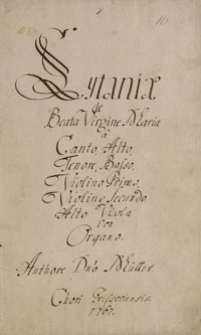 Lytaniæ
de
Beata Virgine Maria
à
Canto, Alto,
Tenore, Basso,
Violino Primo,
Violino Secundo
Alto Viola
Con
Organo.
Authore Dno Müller.
Chori
1767.